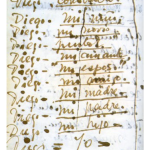 Diego.
Diego. mi niño
Diego. mi novio
Diego. pintor
Diego. mi amante
Diego. mi esposo
Diego. mi amigo
Diego. mi madre
Diego. mi padre
Diego. mi hijo
Diego. = Yo =